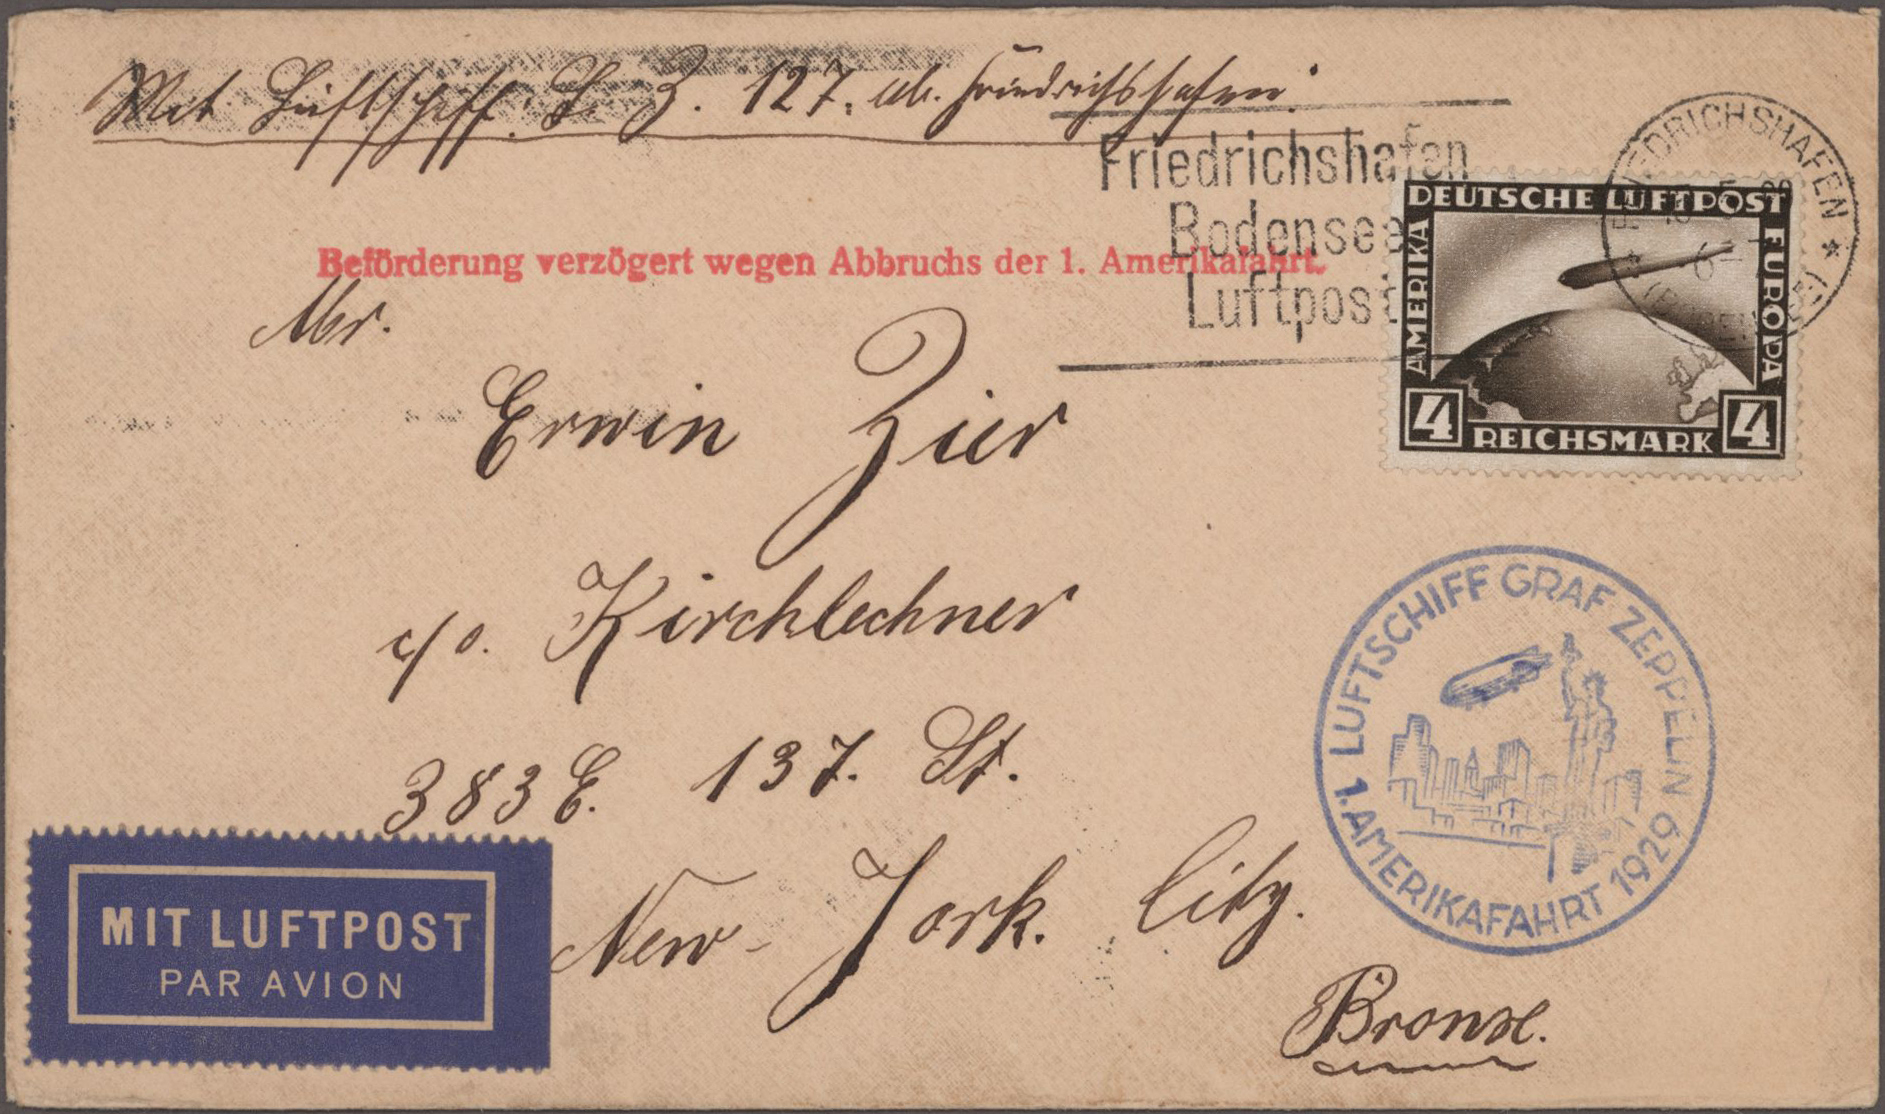 Mit Luftschiff. L. Z. 127. ab. Friedrichshafen.
Friedrichshafen
Bodensee
Luftpost
FRIEDRICHSHAFEN
DEUTSCHE LUFTPOST
AMERIKA
EUROPA
4 REICHSMARK 4
Beförderung verzögert wegen Abbruchs der 1. Amerikafahrt.
Mr.
Erwin Zier
c/o. Kirchlechner
383 E. 137. St.
New-York. City.
Bronx.
LUFTSCHIFF GRAF ZEPPELIN
1. AMERIKAFAHRT 1929
MIT LUFTPOST
PAR AVION